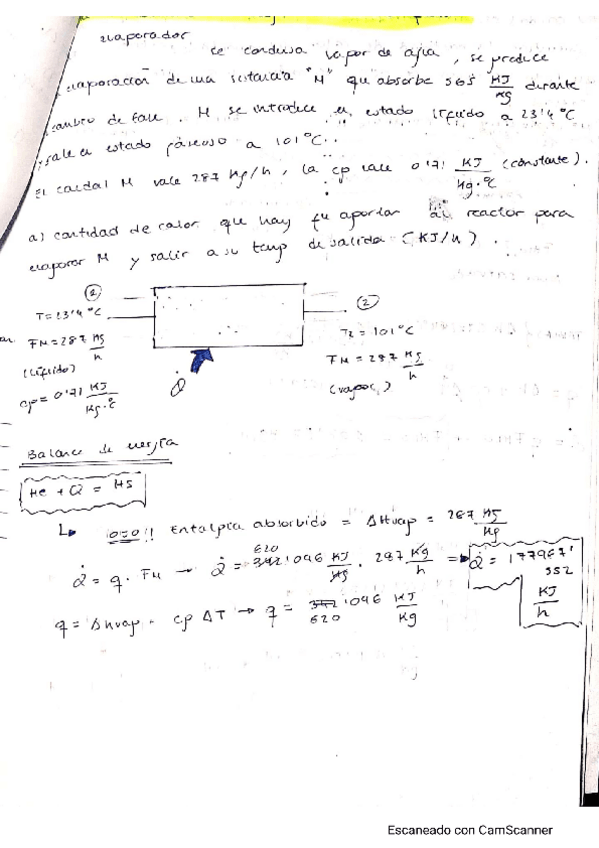 evaporador
se condensa vapor de agua, se produce
evaporación de una sustancia "M" que absorbe 565 KJ/Kg durante
cambio de fase. M se introduce en estado líquido a 23'4 °C
sale en estado gaseoso a 101 °C.
El caudal M vale 287 Kg/h, la cp vale 0'71 KJ/Kg·°C (constante).
a) cantidad de calor que hay que aportar al reactor para
evaporar M y salir a su temp de salida (KJ/h).
② ②
T = 23'4 °C T2 = 101 °C
FM = 287 Kg/h FM = 287 Kg/h
(líquido) (vapor)
cp = 0'71 KJ/Kg·°C Q̇
Balance de energía
He + Q = Hs
0=0!! Entalpia absorbido = ΔHvap = 267 Kg/Kg
Q̇ = q · FM → Q̇ = 620'096 KJ/Kg · 287 Kg/h ⇒ Q̇ = 177967'552 KJ/h
q = ΔHvap · cp ΔT → q = 620'096 KJ/Kg
Escaneado con CamScanner